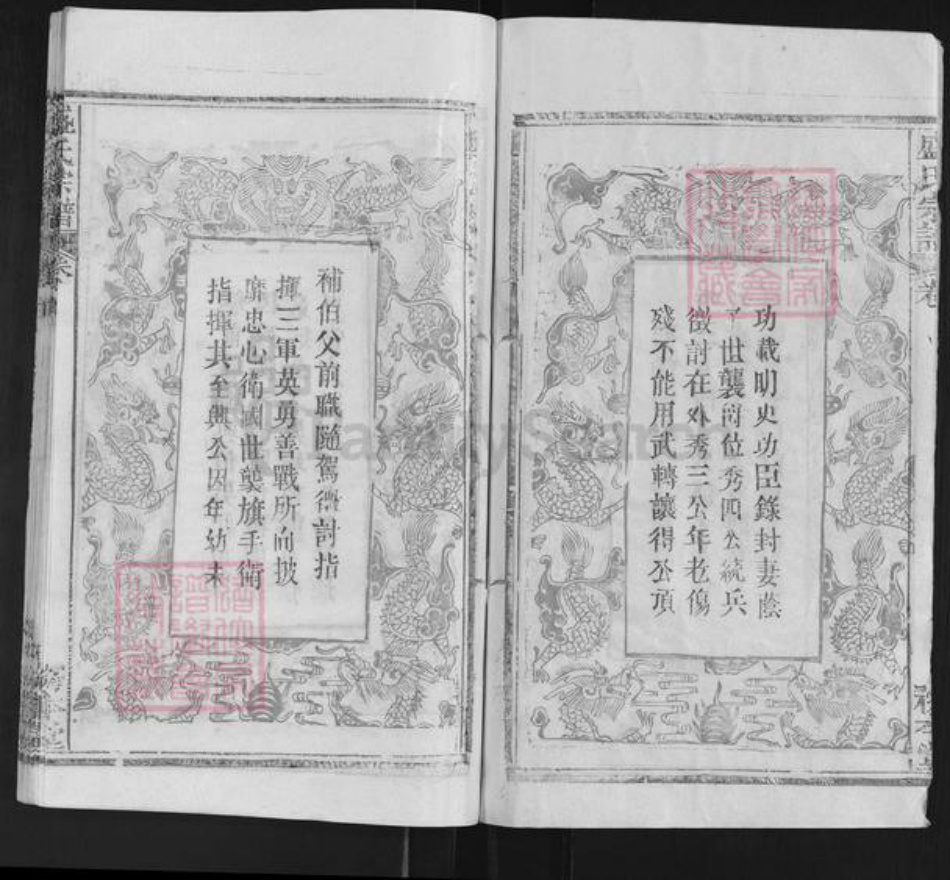 盛氏宗譜 卷
功載明史功臣錄封妻蔭
子世襲簡位秀四公統兵
徵討在外秀三公年老傷
殘不能用武轉讓得公頂
補伯父前職隨駕徵討指
揮三軍英勇善戰所向披
靡忠心衛國世襲旗手衛
指揮其至興公因年幼未
盛氏宗譜 卷